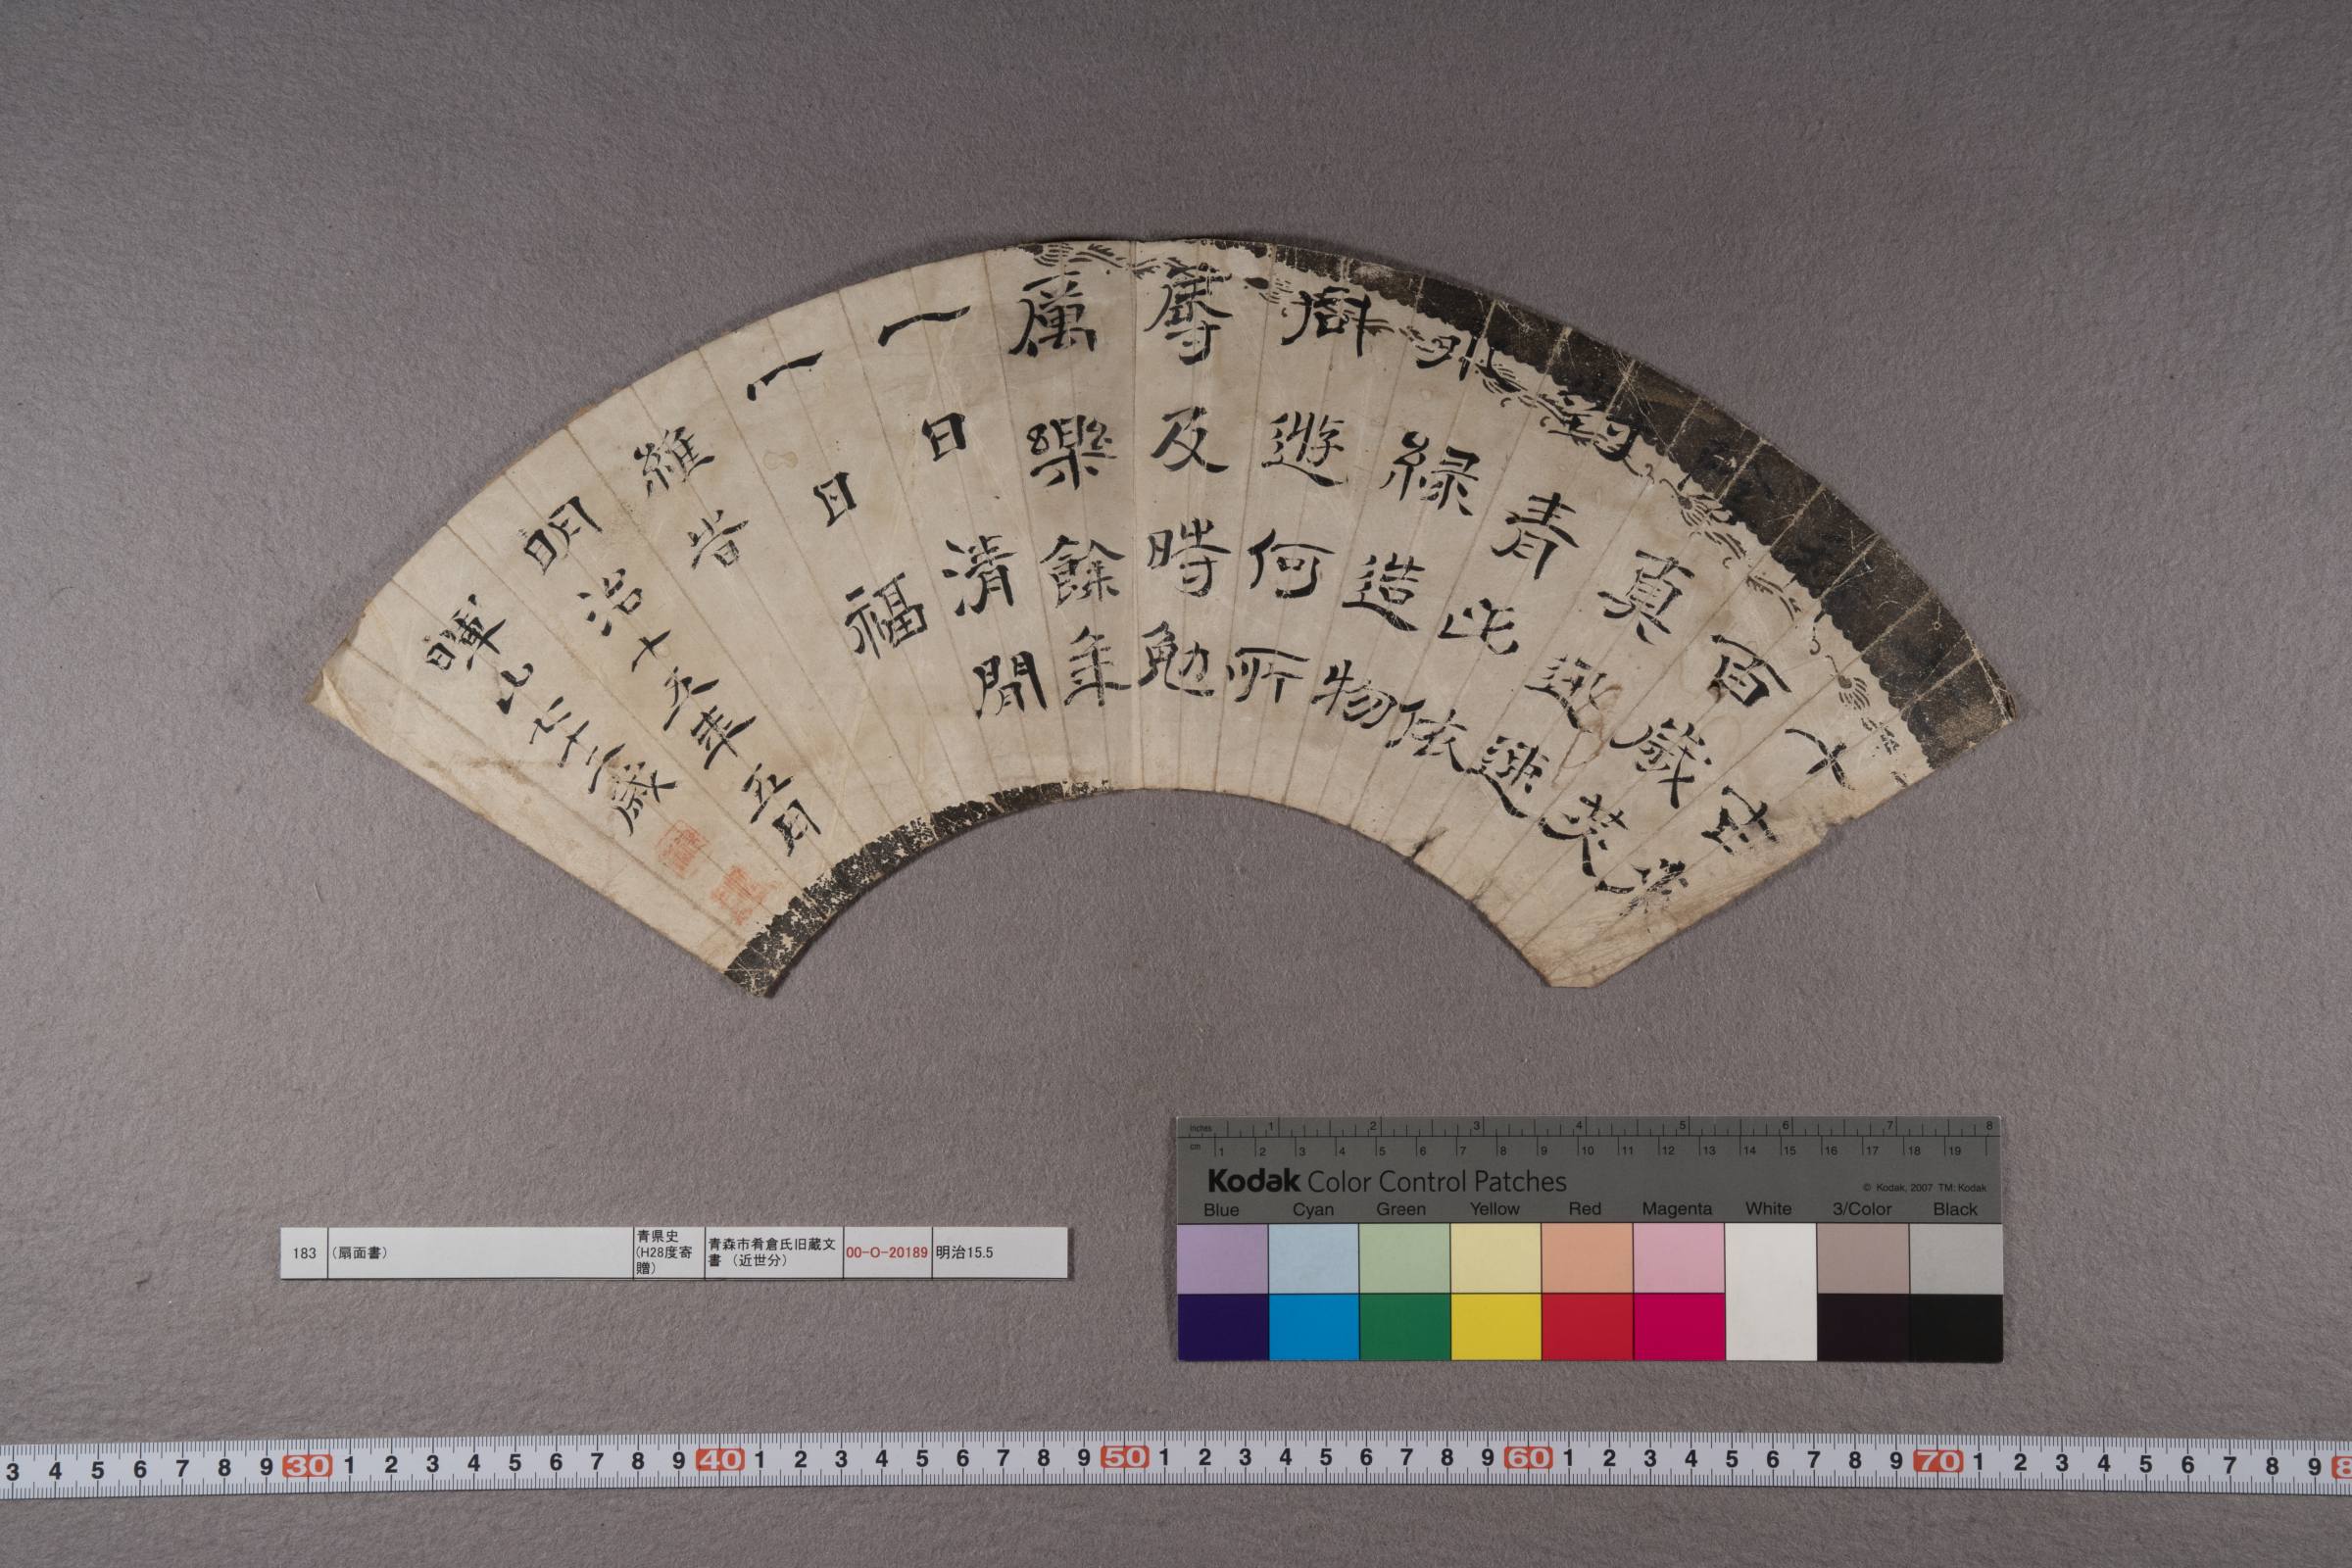 大古
百歲
真迅速
對青此依
外緑造物
周遊何所
及時勉
厲樂餘年
一日清閒
一日福
維 告
明治十五年五月
暉山七十二歳
183 (扇面書) 青県史(H28度寄贈) 青森市肴倉氏旧蔵文書 (近世分) 00-O-20189 明治15.5
inches 1 2 3 4 5 6 7 8
cm 1 2 3 4 5 6 7 8 9 10 11 12 13 14 15 16 17 18 19
Kodak Color Control Patches © Kodak, 2007 TM: Kodak
Blue Cyan Green Yellow Red Magenta White 3/Color Black
3 4 5 6 7 8 9 30 1 2 3 4 5 6 7 8 9 40 1 2 3 4 5 6 7 8 9 50 1 2 3 4 5 6 7 8 9 60 1 2 3 4 5 6 7 8 9 70 1 2 3 4 5 6 7 8 9 8